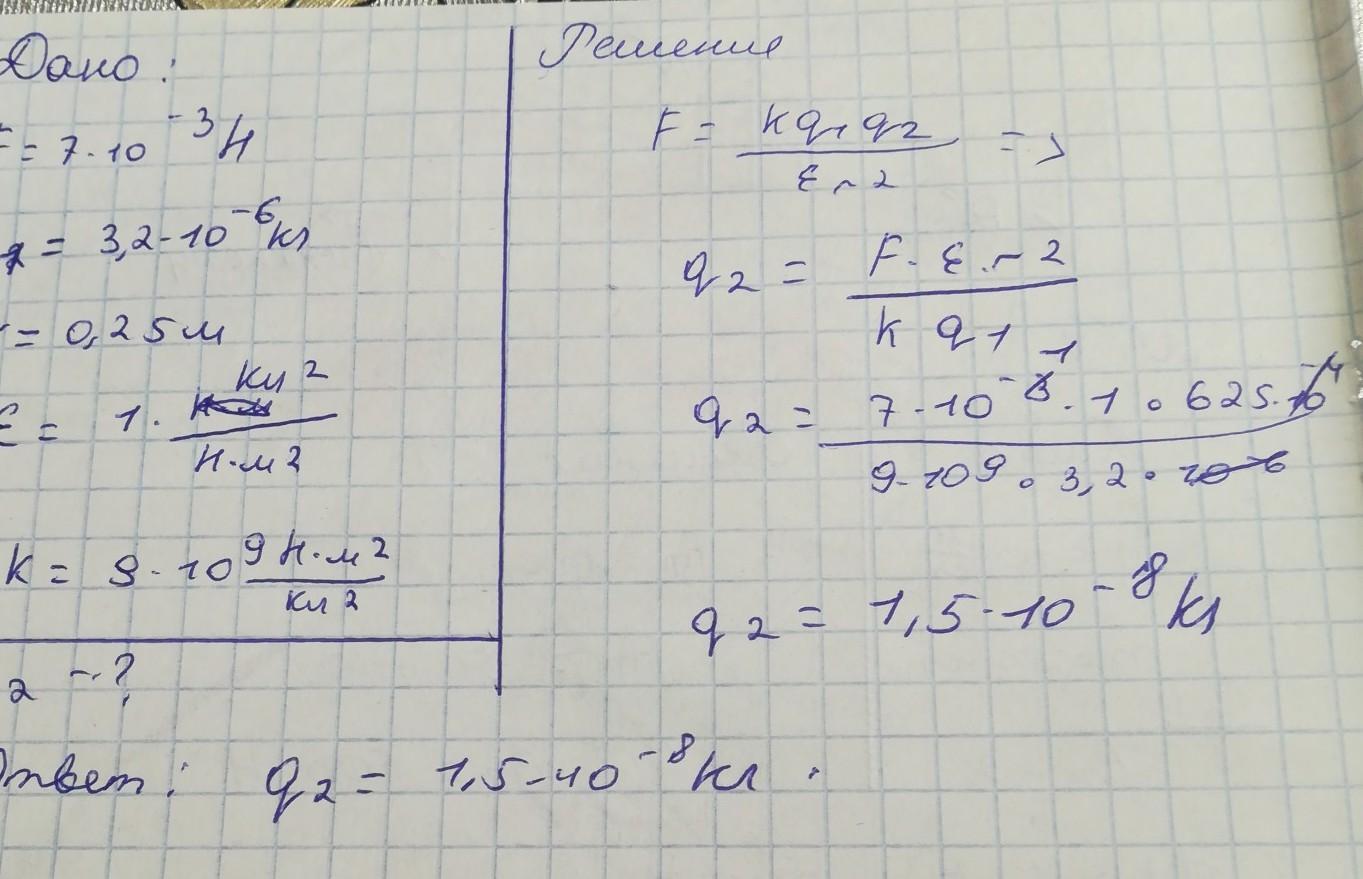 Дано:
F = 7·10⁻³ Н
q₁ = 3,2·10⁻⁶ Кл
r = 0,25 м
ε = 1· Кл² / Н·м²
k = 9·10⁹ Н·м² / Кл²
q₂ -?
Решение
F = kq₁q₂ / εr² =>
q₂ = F·ε·r² / kq₁
q₂ = 7·10⁻³·1·625·10⁻⁴ / 9·10⁹·3,2·10⁻⁶
q₂ = 1,5·10⁻⁸ Кл
Ответ: q₂ = 1,5·10⁻⁸ Кл.